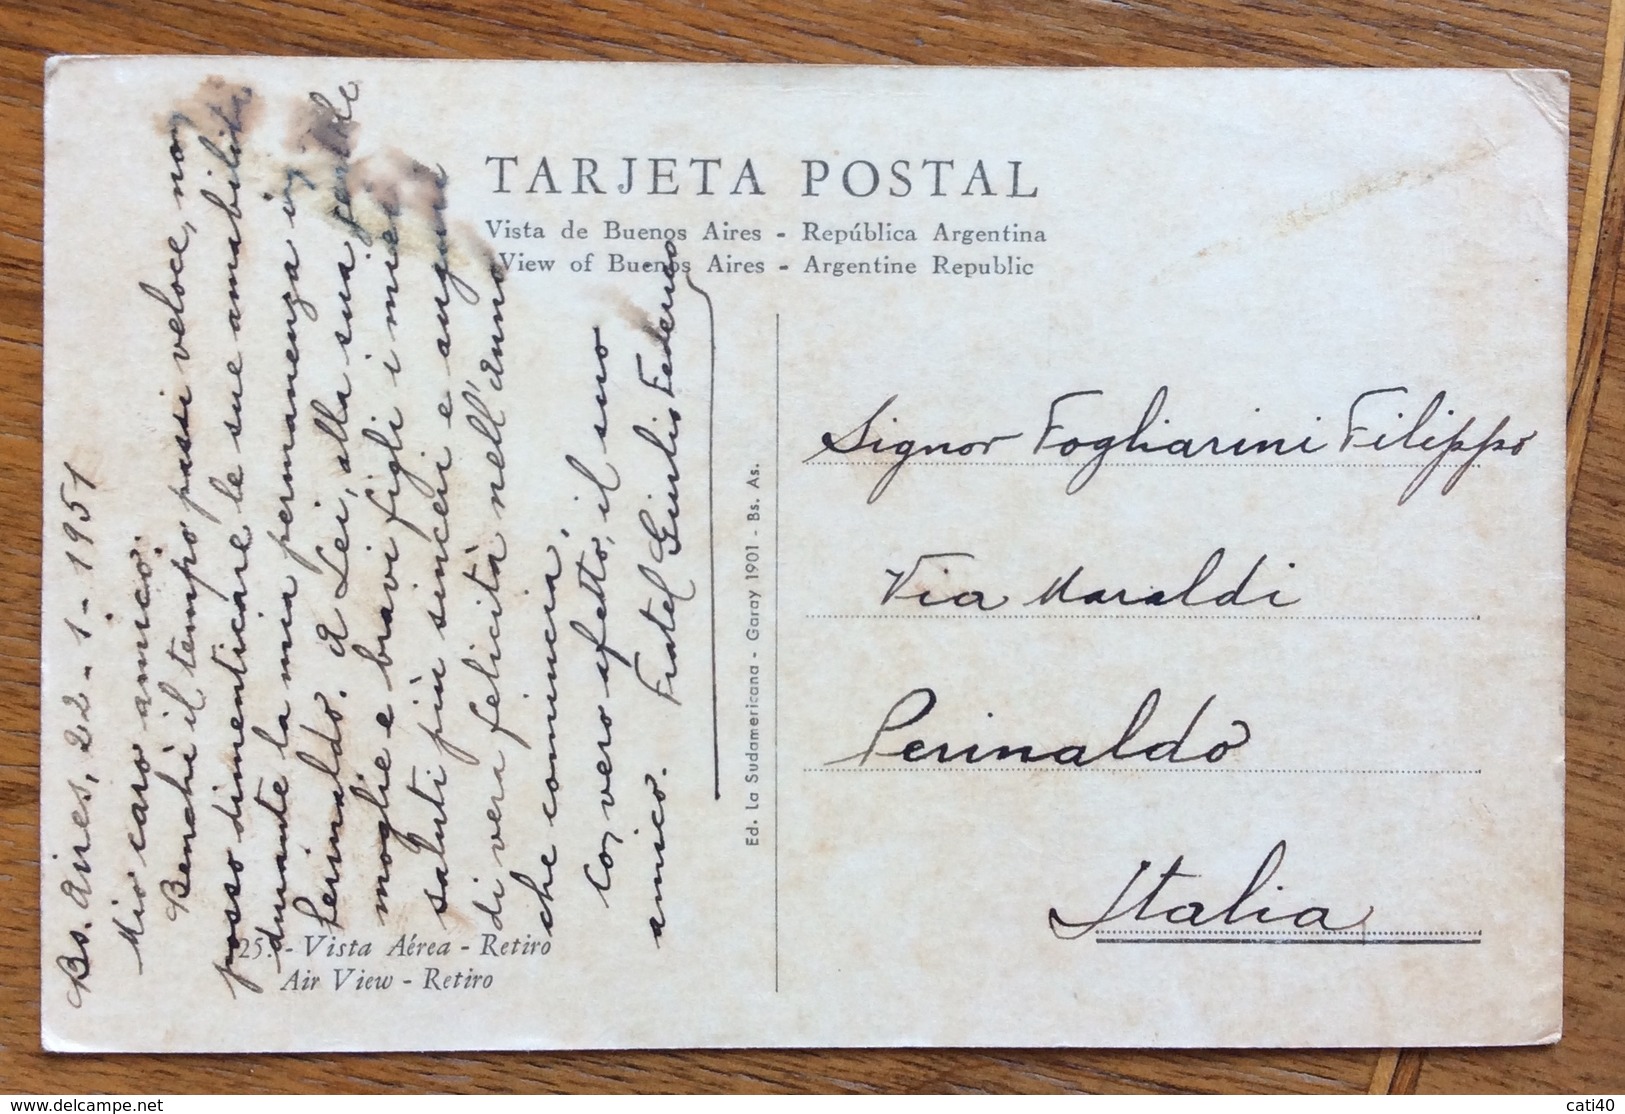 TARJETA POSTAL
Vista de Buenos Aires - República Argentina
View of Buenos Aires - Argentine Republic
Bs. Aires, 22-1-1951
Mio caro amico.
Benchè il tempo passi veloce, non
posso dimenticare le sue amabilità
durante la mia permanenza in
Perinaldo. A Lei, alla sua gentile
moglie e bravi figli i miei
saluti più sinceri e auguri
di vera felicità nell'anno
che comincia.
Con vero affetto, il suo
amico. Fratel Giulio Federico
25.- Vista Aérea - Retiro
Air View - Retiro
Ed. La Sudamericana - Garay 1901 - Bs. As.
Signor Fogliarini Filippo
Via Maraldi
Perinaldo
Italia
cati40